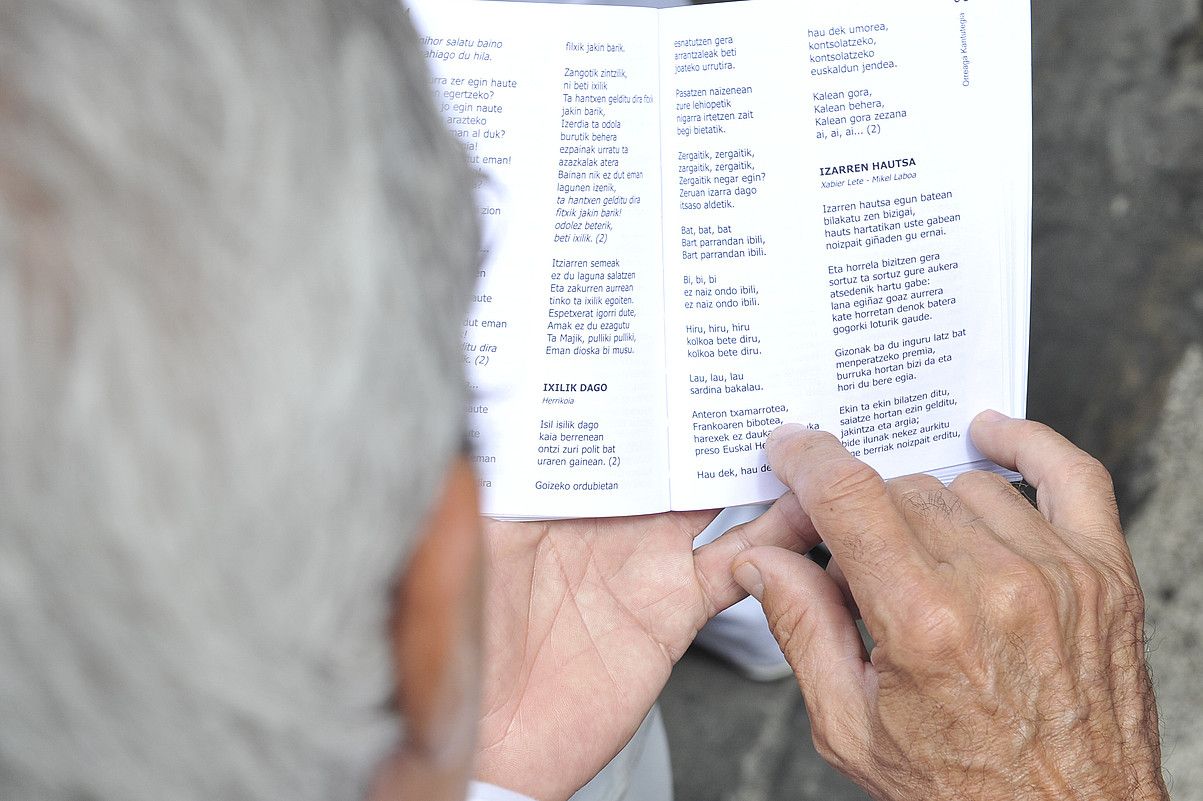 nihor salatu baino
nahiago du hila.
urra zer egin haute
egertzeko?
jo egin naute
arazteko
man al duk?
dut eman!
zion
naute
dut eman
ditu dira
(2)
fitxik jakin barik.
Zangotik zintzilik,
ni beti ixilik
Ta hantxen gelditu dira fitxik
jakin barik,
Izerdia ta odola
burutik behera
ezpainak urratu ta
azazkalak atera
Bainan nik ez dut eman
lagunen izenik,
ta hantxen gelditu dira
fitxik jakin barik!
odolez beterik,
beti ixilik. (2)
Itziarren semeak
ez du laguna salatzen
Eta zakurren aurrean
tinko ta ixilik egoiten.
Espetxerat igorri dute,
Amak ez du ezagutu
Ta Majik, pulliki pulliki,
Eman dioska bi musu.
IXILIK DAGO
Herrikoia
Isil isilik dago
kaia berrenean
ontzi zuri polit bat
uraren gainean. (2)
Goizeko ordubietan
esnatutzen gera
arrantzaleak beti
joateko urrutira.
Pasatzen naizenean
zure lehiopetik
nigarra irtetzen zait
begi bietatik.
Zergaitik, zergaitik,
zargaitik, zergaitik,
Zergaitik negar egin?
Zeruan izarra dago
itsaso aldetik.
Bat, bat, bat
Bart parrandan ibili,
Bart parrandan ibili.
Bi, bi, bi
ez naiz ondo ibili,
ez naiz ondo ibili.
Hiru, hiru, hiru
kolkoa bete diru,
kolkoa bete diru.
Lau, lau, lau
sardina bakalau.
Anteron txamarrotea,
Frankoaren bibotea,
harexek ez dauka
preso Euskal
Hau dek, hau
hau dek umorea,
kontsolatzeko,
kontsolatzeko
euskaldun jendea.
Kalean gora,
Kalean behera,
Kalean gora zezana
ai, ai, ai... (2)
IZARREN HAUTSA
Xabier Lete - Mikel Laboa
Izarren hautsa egun batean
bilakatu zen bizigai,
hauts hartatikan uste gabean
noizpait giñaden gu ernai.
Eta horrela bizitzen gera
sortuz ta sortuz gure aukera
atsedenik hartu gabe:
lana egiñaz goaz aurrera
kate horretan denok batera
gogorki loturik gaude.
Gizonak ba du inguru latz bat
menperatzeko premia,
burruka hortan bizi da eta
hori du bere egia.
Ekin ta ekin bilatzen ditu,
saiatze hortan ezin gelditu,
jakintza eta argia;
bide ilunak nekez aurkitu
ge berriak noizpait erditu,
Orreaga Kantutegia